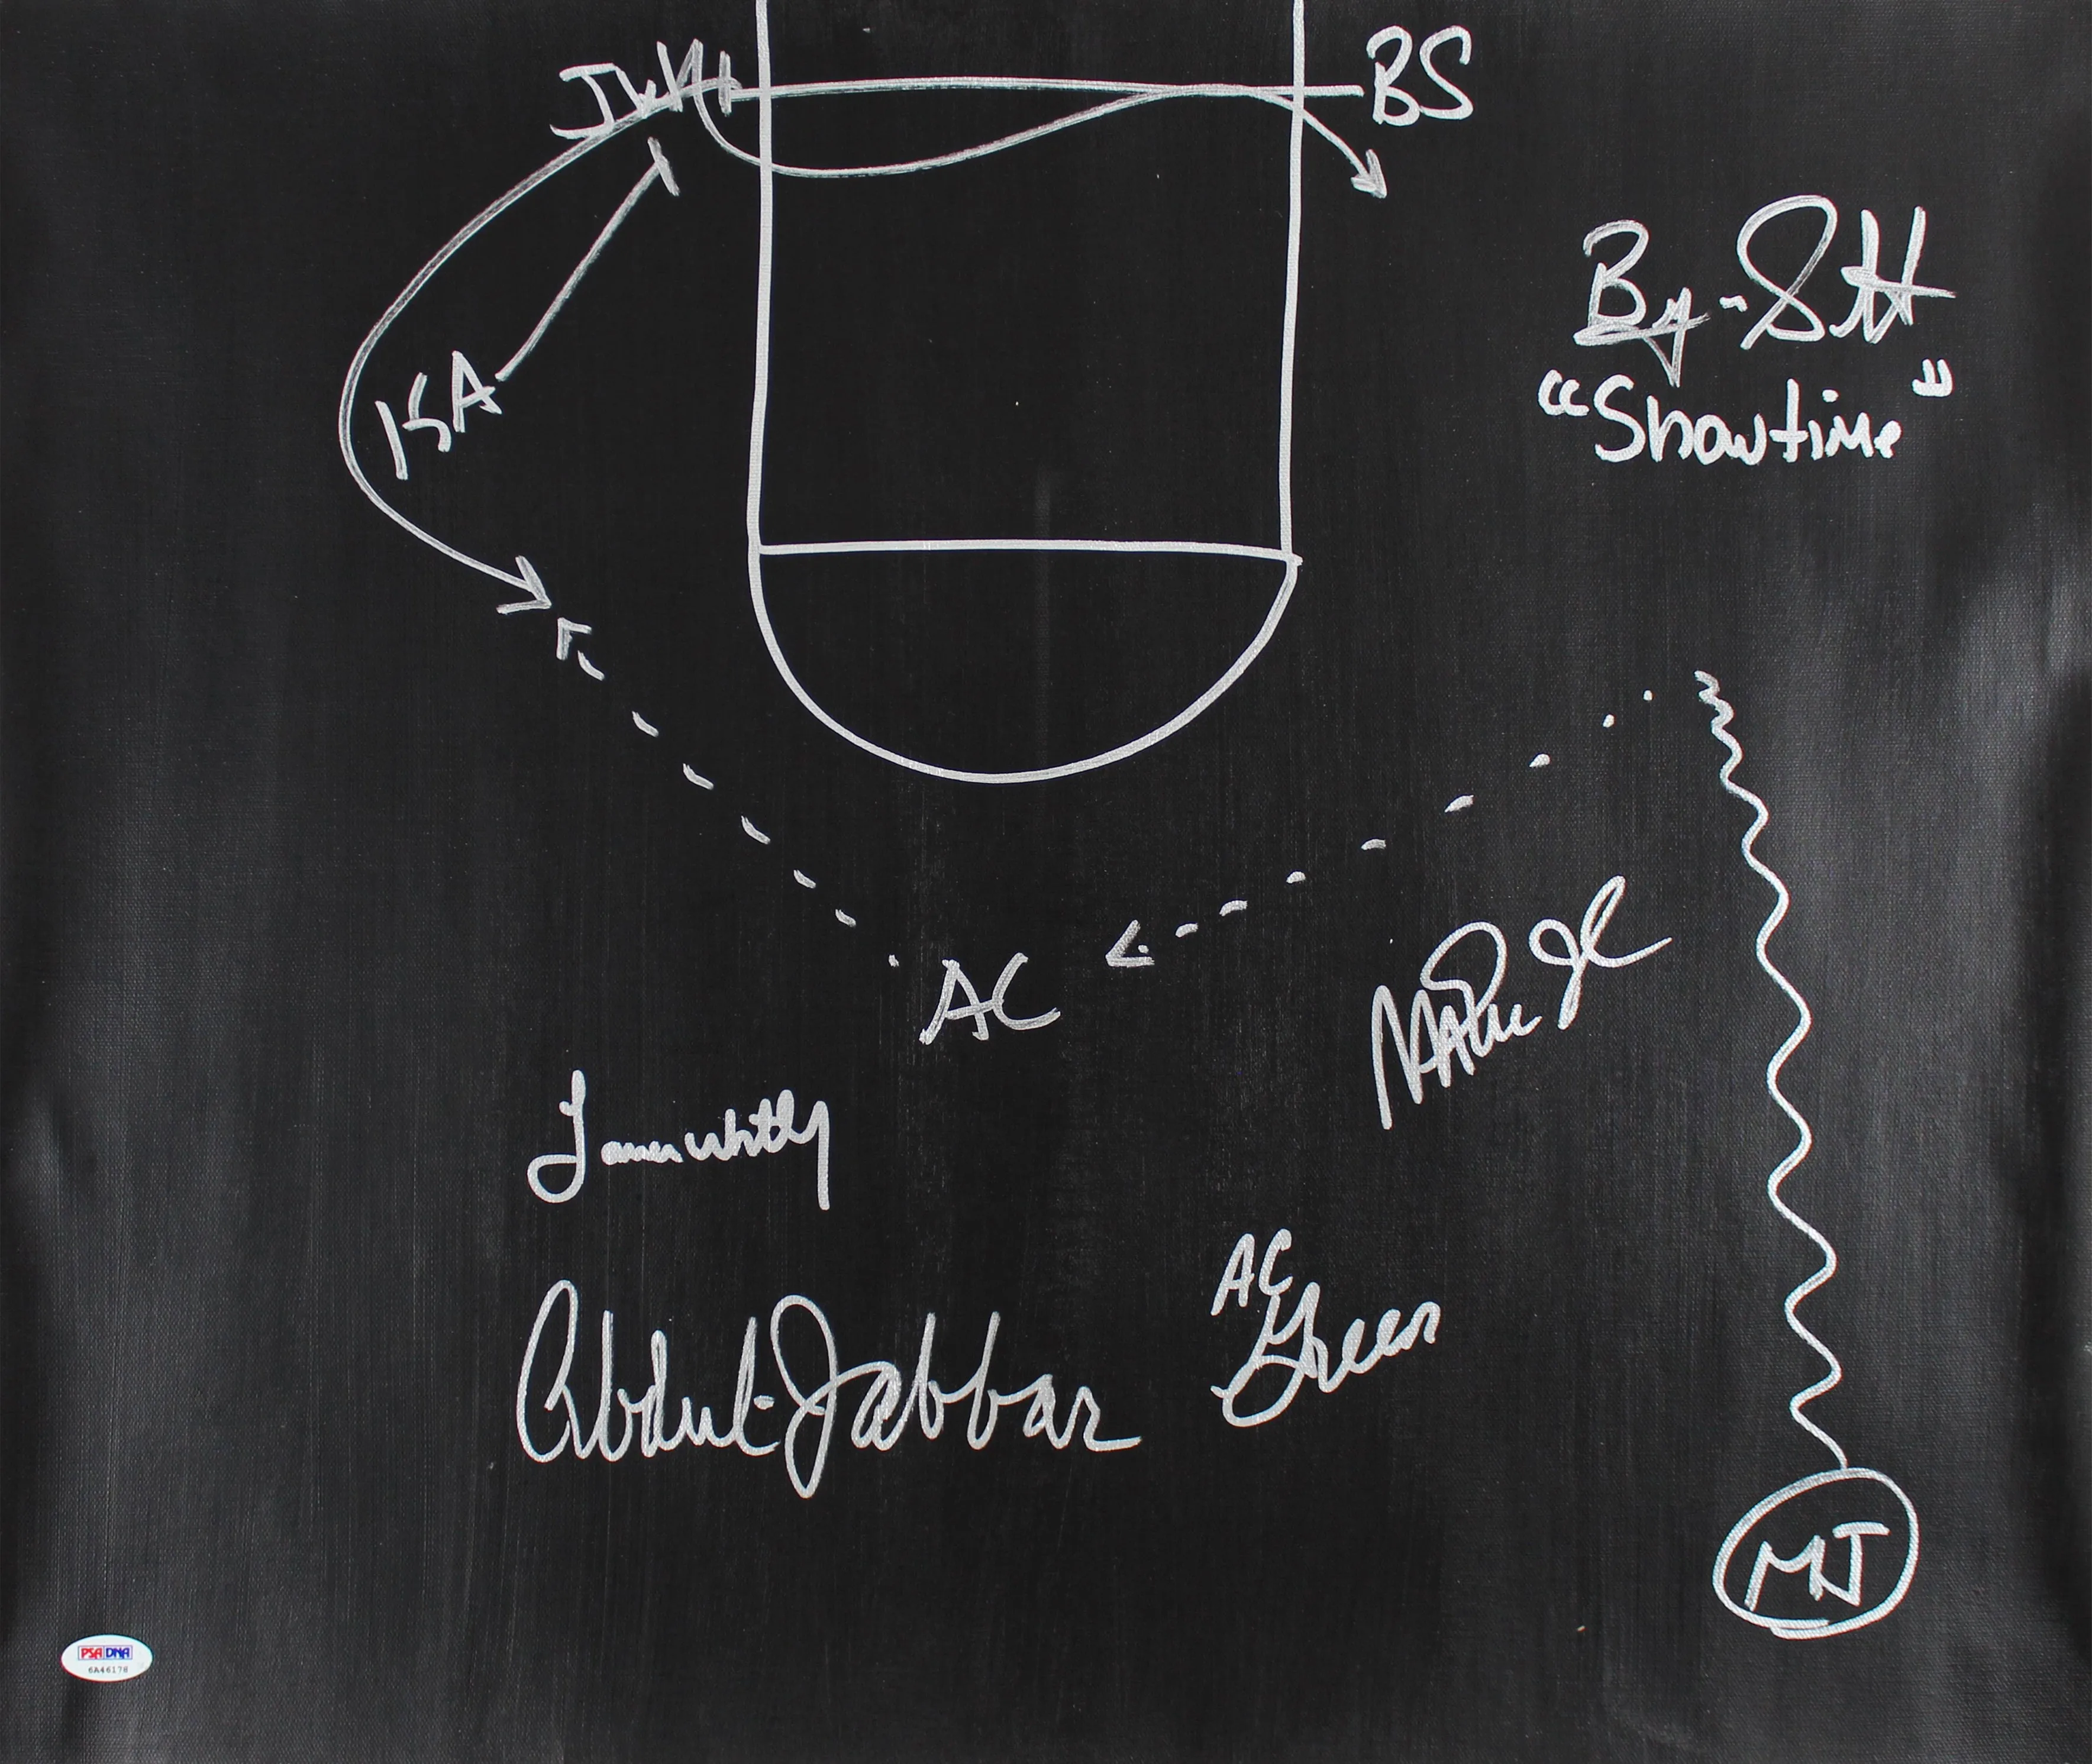 JW
BS
By-Scott
"Showtime"
KA
AC
Magic J
James Worthy
AC
Green
Abdul-Jabbar
MJ
PSA DNA
6A46178